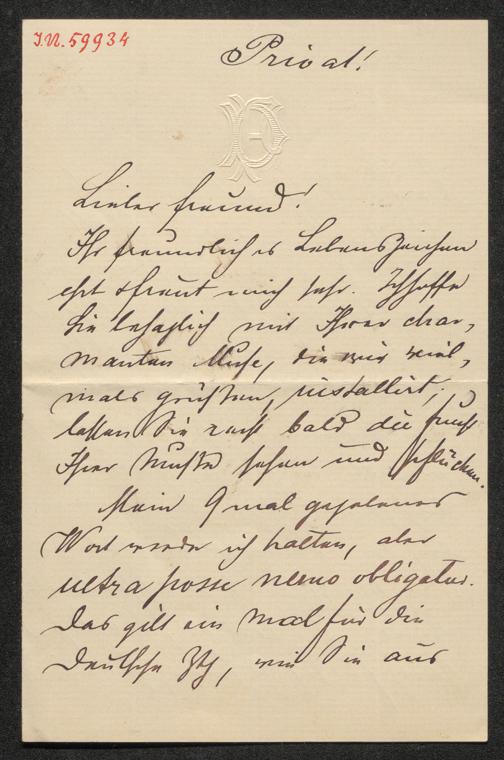 I.N. 59934
Privat!
Lieber Freund!
Ihr freundliches Lebenszeichen
erfreut mich sehr. Ich hoffe
Sie behaglich mit Ihrer char-
manten Muse, die wir viel-
mals grüßen, installirt;
lassen Sie recht bald die Frucht
Ihrer Muße sehen und pflücken.
Mein 9 mal gegebenes
Wort werde ich halten, aber
ultra posse nemo obligatur.
Das gilt ein mal für die
Deutsche Ztg, wie Sie aus